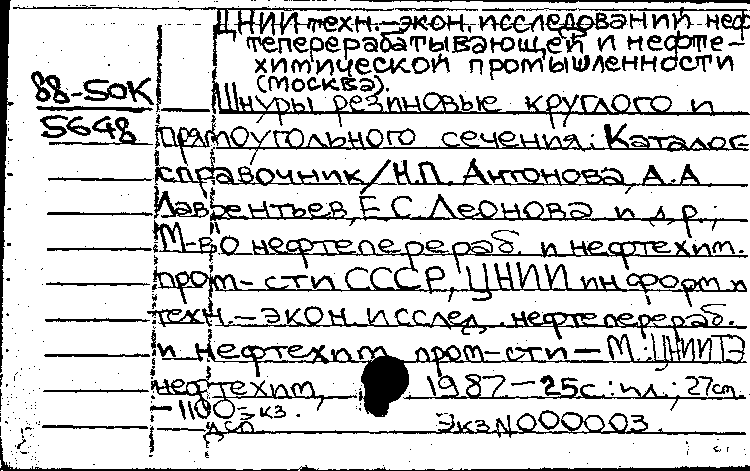 ЦНИИ техн.-экон. исследований неф
теперерабатывающей и нефте-
химической промышленности
(Москва).
88-50К
5648
Шнуры резиновые круглого и
прямоугольного сечения: Каталог
справочник/Н.П. Антонова, А.А
Лаврентьев, Е.С. Леонова и др.;
М-во нефтеперераб. и нефтехим.
пром-сти СССР, ЦНИИ информ и
техн.-экон. исслед. нефтеперераб.
и нефтехим пром-сти - М.: ЦНИИТЭ
нефтехим, 1987 - 25с.: ил.; 27cm.
- 1100 экз.
ДСП. Экз N000003.